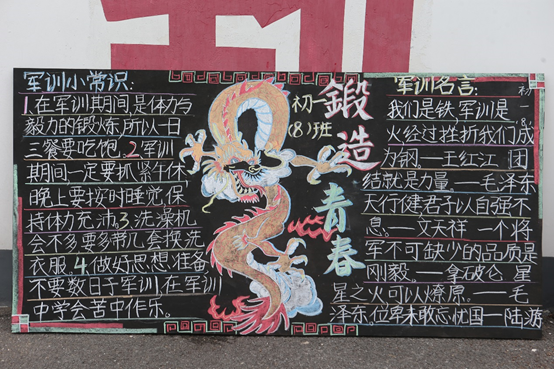 军训小常识:
1.在军训期间,是体力与
毅力的锻炼,所以一日
三餐要吃饱.2.军训
期间一定要抓紧午休
晚上要按时睡觉,保
持体力充沛,3.洗澡机
会不多要多带几套换洗
衣服.4.做好思想准备
不要数日子军训,在军训
中学会苦中作乐.
初一
(8)班
鍛造
青春
军训名言:
初一8.
我们是铁,军训是
火经过挫折我们成
为钢.—王红江 团
结就是力量.—毛泽东
天行健君子以自强不
息.—文天祥 一个将
军不可缺少的品质是
刚毅.—拿破仑 星
星之火可以燎原.—毛
泽东,位卑未敢忘忧国—陆游